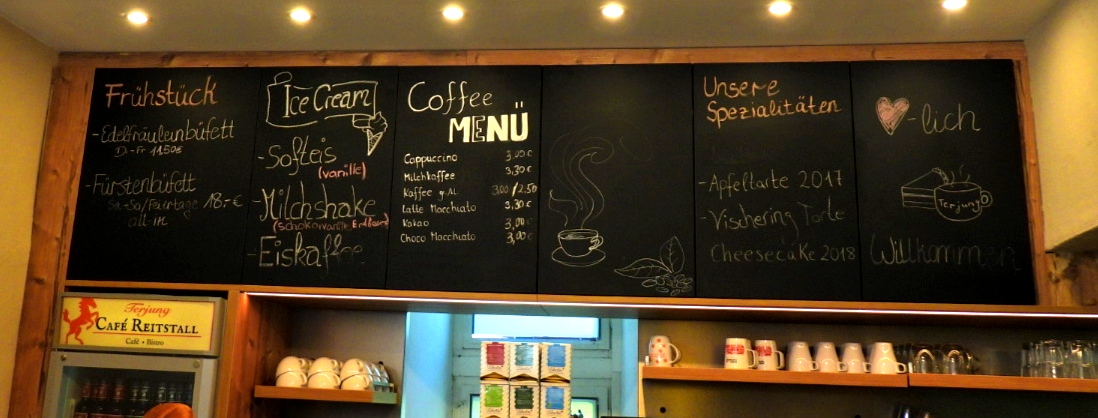 Frühstück
-Edelfräuleinbüfett
Di-Fr 11,50€
-Fürstenbüfett
Sa-So/Feiertage 18,-€
all in
Ice Cream
-Softeis
(vanille)
-Milchshake
(Schoko,vanille,Erdbeere)
-Eiskaffee
Coffee
MENÜ
Cappuccino 3,00€
Milchkaffee 3,30€
Kaffee 3,00/2,50
Latte Macchiato 3,30€
Kakao 3,00€
Choco Macchiato 3,00€
Unsere
Spezialitäten
-Apfeltarte 2017
-Vischering Torte
Cheesecake 2018
-lich
Terjung
Willkommen
Terjung
CAFÉ REITSTALL
Café • Bistro